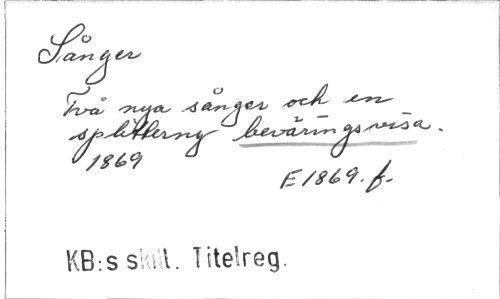 Sånger
Två nya sånger och en
splitterny beväringsvisa.
1869
E1869.f.
KB:s skill. Titelreg.